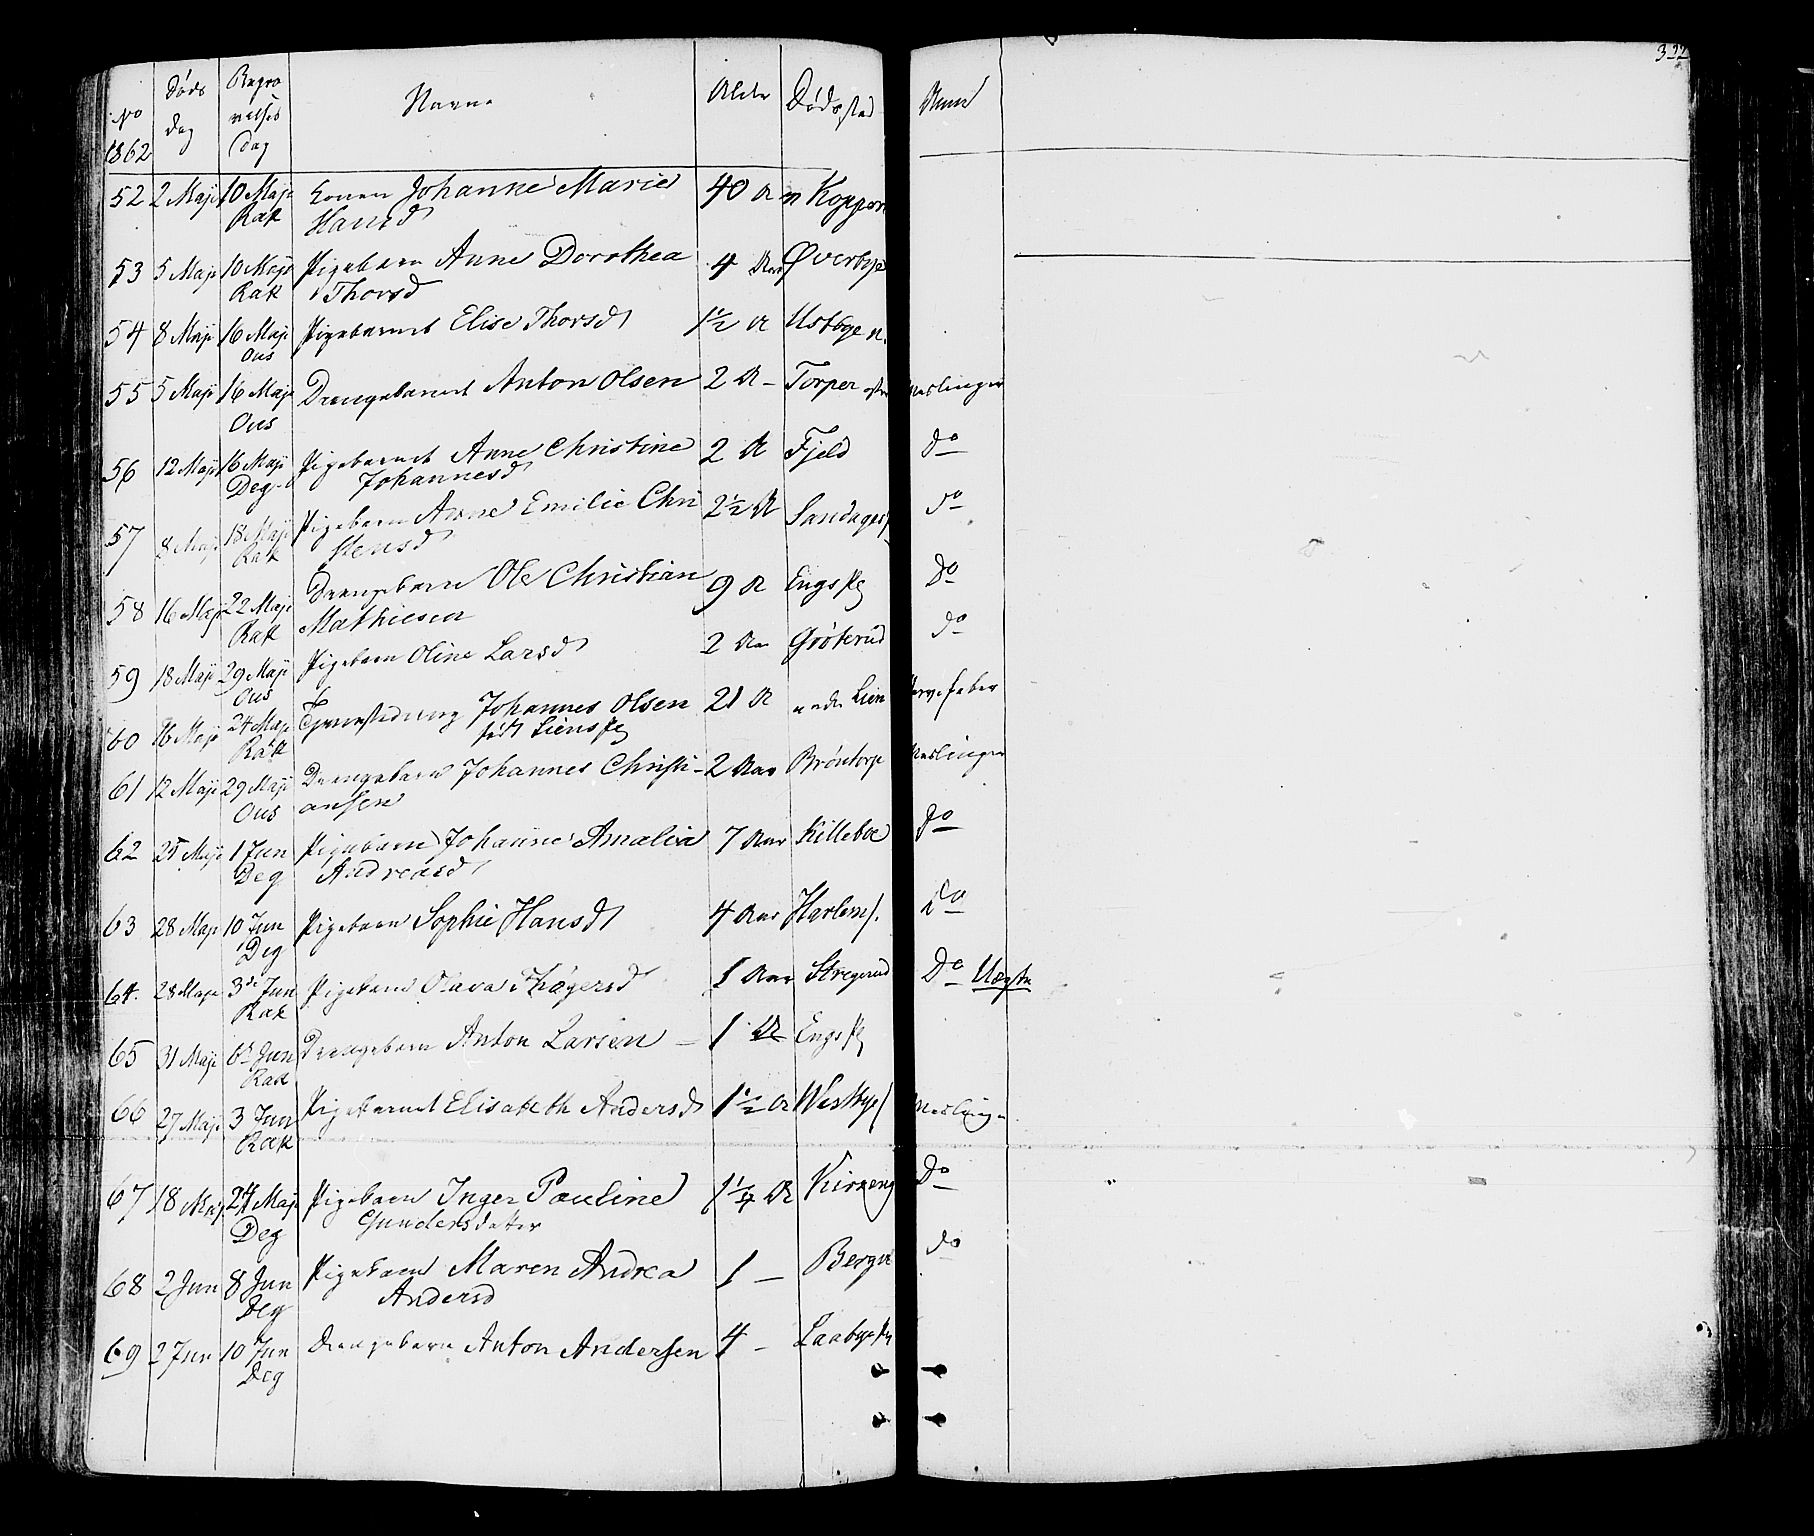 322
No 1862 Døds dag Begravelses Dag Navne Alder Dødssted Anm
52 2 Maji 10 Maji Rak Konen Johanne Marie 40 A n Koppern
Hansd
53 5 Maji 10 Maji Rak Pigebarn Anne Dorothea 4 Aar Øverbye
Thorsd
54 8 Maji 16 Maji Ous Pigebarnet Elise Thorsd 1½ A Ustbye n.
55 5 Maji 16 Maji Ous Drengebarnet Anton Olsen 2 A – Torper Meslinger
56 12 Maji 16 Maji Deg. Pigebarnet Anne Christine 2 A Fjeld Do
Johannesd
57 8 Maji 18 Maji Rak Pigebarn Anne Emilie Chri 2½ A Do
stensd
58 16 Maji 22 Maji Rak Drengebarn Ole Christian 9 A Engs Do
Mathiesen
59 18 Maji 29 Maji Ous Pigebarn Oline Larsd 2 Aar Grøterud Do
60 16 Maji 24 Maji Rak Johannes Olsen 21 A Lien Nervefeber
født
61 12 Maji 29 Maji Ous Drengebarn Johannes Christi- 2 Aar Brøntorp Meslinger
ansen
62 25 Maji 1 Jun Deg Pigebarn Johanne Amalia 7 Aar Killeboe Do
Andreasd
63 28 Maji 10 Jun Deg Pigebarn Sophie Hansd 4 Aar Do
64. 28 Maji 3de Jun Rak Pigebarn Olava Thøgersd 1 Aar Stregerud Do Uægte
65 31 Maji 6te Jun Rak Drengebarn Anton Larsen – 1 A Engs
66 27 Maji 3 Jun Rak Pigebarnet Elisabeth Andersd 1½ A Westbye Meslinge
67 18 Maji 24 Maji Deg Pigebarn Inger Pauline 1¼ A Kirkeeng Do
Gundersdatter
68 2 Jun 8 Jun Deg Pigebarn Maren Andrea 1 – Do
Andersd
69 2 Jun 10 Jun Deg Drengebarn Anton Andersen 4 –